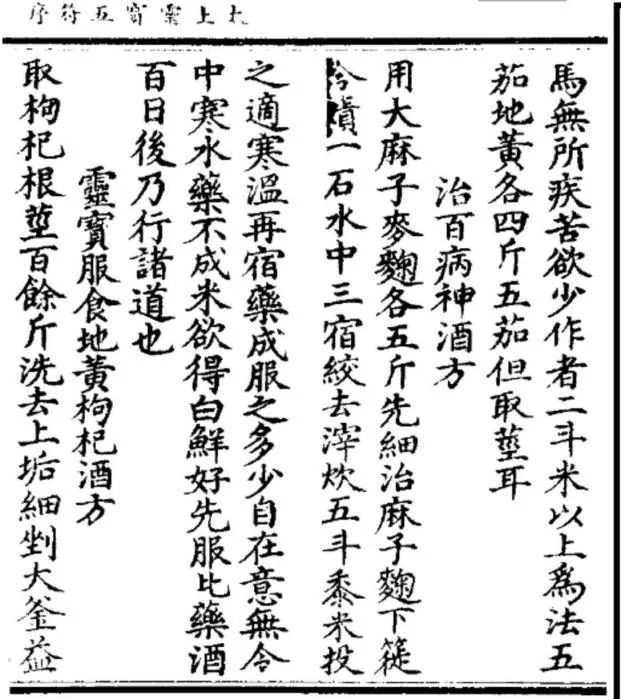 太上靈寶五符序
馬無所疾苦欲少作者二斗米以上爲法五
茄地黃各四斤五茄但取莖耳
治百病神酒方
用大麻子麥麴各五斤先細治麻子麴下簁
令漬一石水中三宿絞去滓炊五斗黍米投
之適寒溫再宿藥成服之多少自在意無令
中寒水藥不成米欲得白鮮好先服比藥酒
百日後乃行諸道也
靈寶服食地黃枸杞酒方
取枸杞根莖百餘斤洗去上垢細剉大釜益